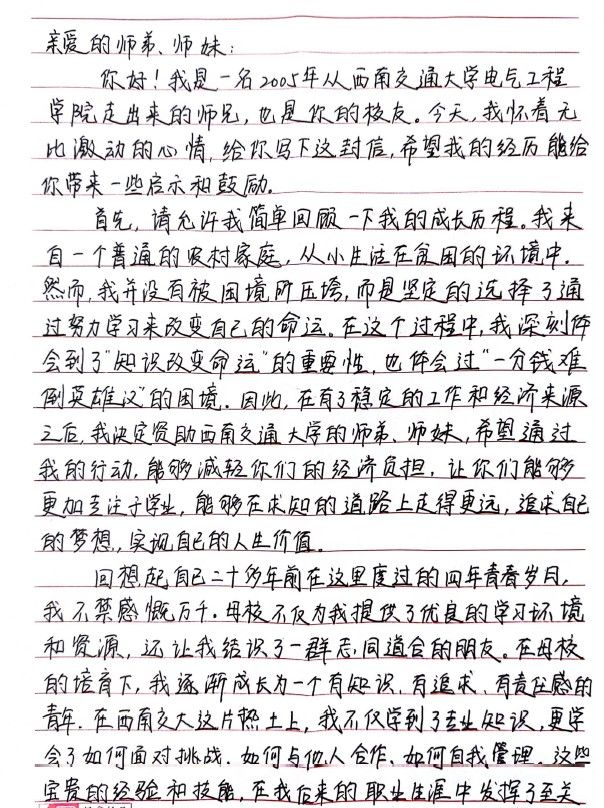 亲爱的师弟、师妹:
你好!我是一名2005年从西南交通大学电气工程
学院走出来的师兄,也是你的校友。今天,我怀着无
比激动的心情,给你写下这封信,希望我的经历能给
你带来一些启示和鼓励。
首先,请允许我简单回顾一下我的成长历程。我来
自一个普通的农村家庭,从小生活在贫困的环境中.
然而,我并没有被困境所压垮,而是坚定的选择了通
过努力学习来改变自己的命运。在这个过程中,我深刻体
会到了"知识改变命运"的重要性,也体会过"一分钱难
倒英雄汉"的困境.因此,在有了稳定的工作和经济来源
之后,我决定资助西南交通大学的师弟、师妹,希望通过
我的行动,能够减轻你们的经济负担,让你们能够
更加专注于学业,能够在求知的道路上走得更远,追求自己
的梦想,实现自己的人生价值。
回想起自己二十多年前在这里度过的四年青春岁月,
我不禁感慨万千.母校不仅为我提供了优良的学习环境
和资源,还让我结识了一群志同道合的朋友。在母校
的培育下,我逐渐成长为一个有知识、有追求、有责任感的
青年.在西南交大这片热土上,我不仅学到了专业知识,更学
会了如何面对挑战、如何与他人合作、如何自我管理。这些
宝贵的经验和技能,在我后来的职业生涯中发挥了至关